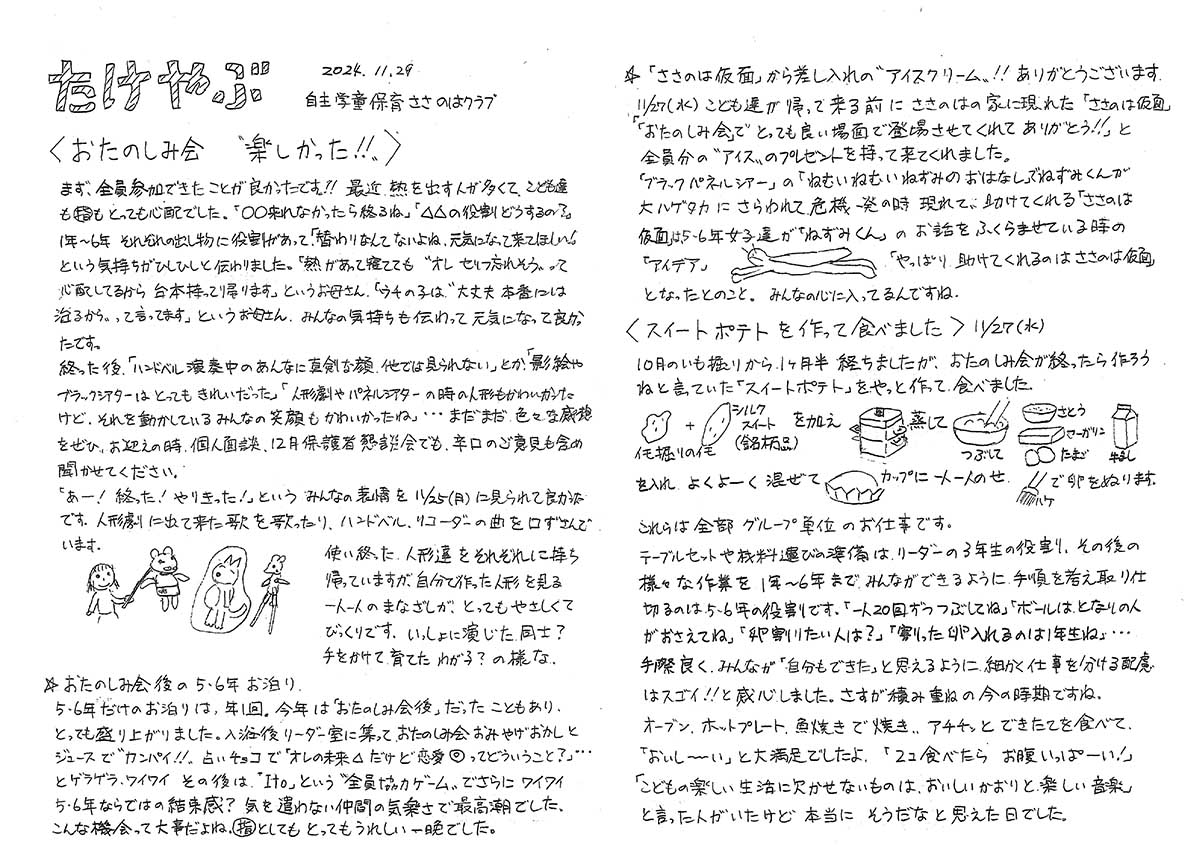 たけやぶ
2024.11.29
自主学童保育ささのはクラブ
〈おたのしみ会 〝楽しかった!!〟〉
まず、全員参加できたことが良かったです!! 最近 熱を出す人が多くて、こども達
も㊟もとっても心配でした。「〇〇来れなかったら終るね」「△△の役割どうするの?」
1年〜6年 それぞれの出し物に役割があって「替わりなんてないよね、元気になって来てほしい!」
という気持ちがひしひしと伝わりました。「熱があって寝てても〝オレ セリフ忘れそう〟って
心配してるから 台本持って帰ります」というお母さん、「ウチの子は〝大丈夫 本番には
治るから〟って言ってます」というお母さん、みんなの気持ちも伝わって元気になって良かっ
たです。
終った後、「ハンドベル演奏中のあんなに真剣な顔、他では見られない」とか、「影絵や
ブラックシアターはとってもきれいだった」「人形劇やパネルシアターの時の人形もかわいかった
けど、それを動かしているみんなの笑顔もかわいかったね」…まだまだ色々な感想
をぜひ、お迎えの時、個人面談、12月保護者懇談会でも、辛口のご意見も含め
聞かせてください。
「あー!終った!やりきった!」という みんなの表情を 11/25(月)に見られて良かった
です。人形劇に出て来た歌を歌ったり、ハンドベル、リコーダーの曲を口ずさんで
います。
使い終った 人形達をそれぞれに持ち
帰っていますが、自分で作った人形を見る
一人一人のまなざしが、とってもやさしくて
びっくりです。いっしょに演じた同士?
手をかけて育てた わが子?の様な。
☆おたのしみ会後の5・6年お泊り
5・6年だけのお泊りは、年1回。今年は「おたのしみ会後」だったこともあり、
とっても盛り上がりました。入浴後リーダー室に集って おたのしみ会おみやげおかしと
ジュースで〝カンパイ!!〟占いチョコで「オレの未来△だけど恋愛◎ってどういうこと?」…
とゲラゲラ、ワイワイ その後は、〝Ito〟という〝全員協力ゲーム〟でさらにワイワイ
5・6年ならではの結束感? 気を遣わない仲間の気楽さで最高潮でした。
こんな機会って大事だよね、㊟としても とってもうれしい一晩でした。
☆「ささのは仮面」から差し入れの〝アイスクリーム〟!! ありがとうございます
11/27(水)こども達が帰って来る前に ささのはの家に現れた「ささのは仮面」
「「おたのしみ会」で とっても良い場面で登場させてくれて ありがとう!!」と
全員分の〝アイス〟のプレゼントを持って来てくれました。
「ブラックパネルシアー」の「ねむいねむいねずみのおはなし」でねずみくんが
大ハゲタカに さらわれて危機一発の時 現れて、助けてくれる「ささのは
仮面」は5・6年女子達が「ねずみくん」の お話をふくらませている時の
「アイデア」 「やっぱり 助けてくれるのは ささのは仮面」
となったとのこと。みんなの心に入ってるんですね。
〈スイートポテトを作って食べました〉11/27(水)
10月のいも掘りから1ヶ月半 経ちましたが、おたのしみ会が終ったら作ろう
ねと言ていた「スイートポテト」をやっと作って、食べました。
イモ掘りのイモ + シルクスイート(銘柄品) を加え 蒸して つぶして さとう マーガリン たまご 牛乳
を入れ よくよーく 混ぜて カップに一人一人のせ、ハケ で卵をぬります。
これらは全部 グループ単位のお仕事です。
テーブルセットや材料運びの準備は、リーダーの3年生の役割り、その後の
様々な作業を 1年〜6年まで、みんなができるように 手順を考え取り仕
切るのは5・6年の役割です。「一人20回ずつつぶしてね」「ボールは、となりの人
がおさえてね」「卵割りたい人は?」「割った卵入れるのは1年生ね」…
手際良く、みんなが「自分もできた」と思えるように、細かく仕事を分ける配慮
はスゴイ!!と感心しました。さすが積み重ねの今の時期ですね。
オーブン、ホットプレート、魚焼きで焼き、アチチッと できたてを食べて、
「おいし〜い」と大満足でしたよ。「2コ食べたら お腹いっぱーい!」
「こどもの楽しい生活に欠かせないものは、おいしいかおりと、楽しい音楽」
と言った人がいたけど 本当に そうだなと思えた日でした。